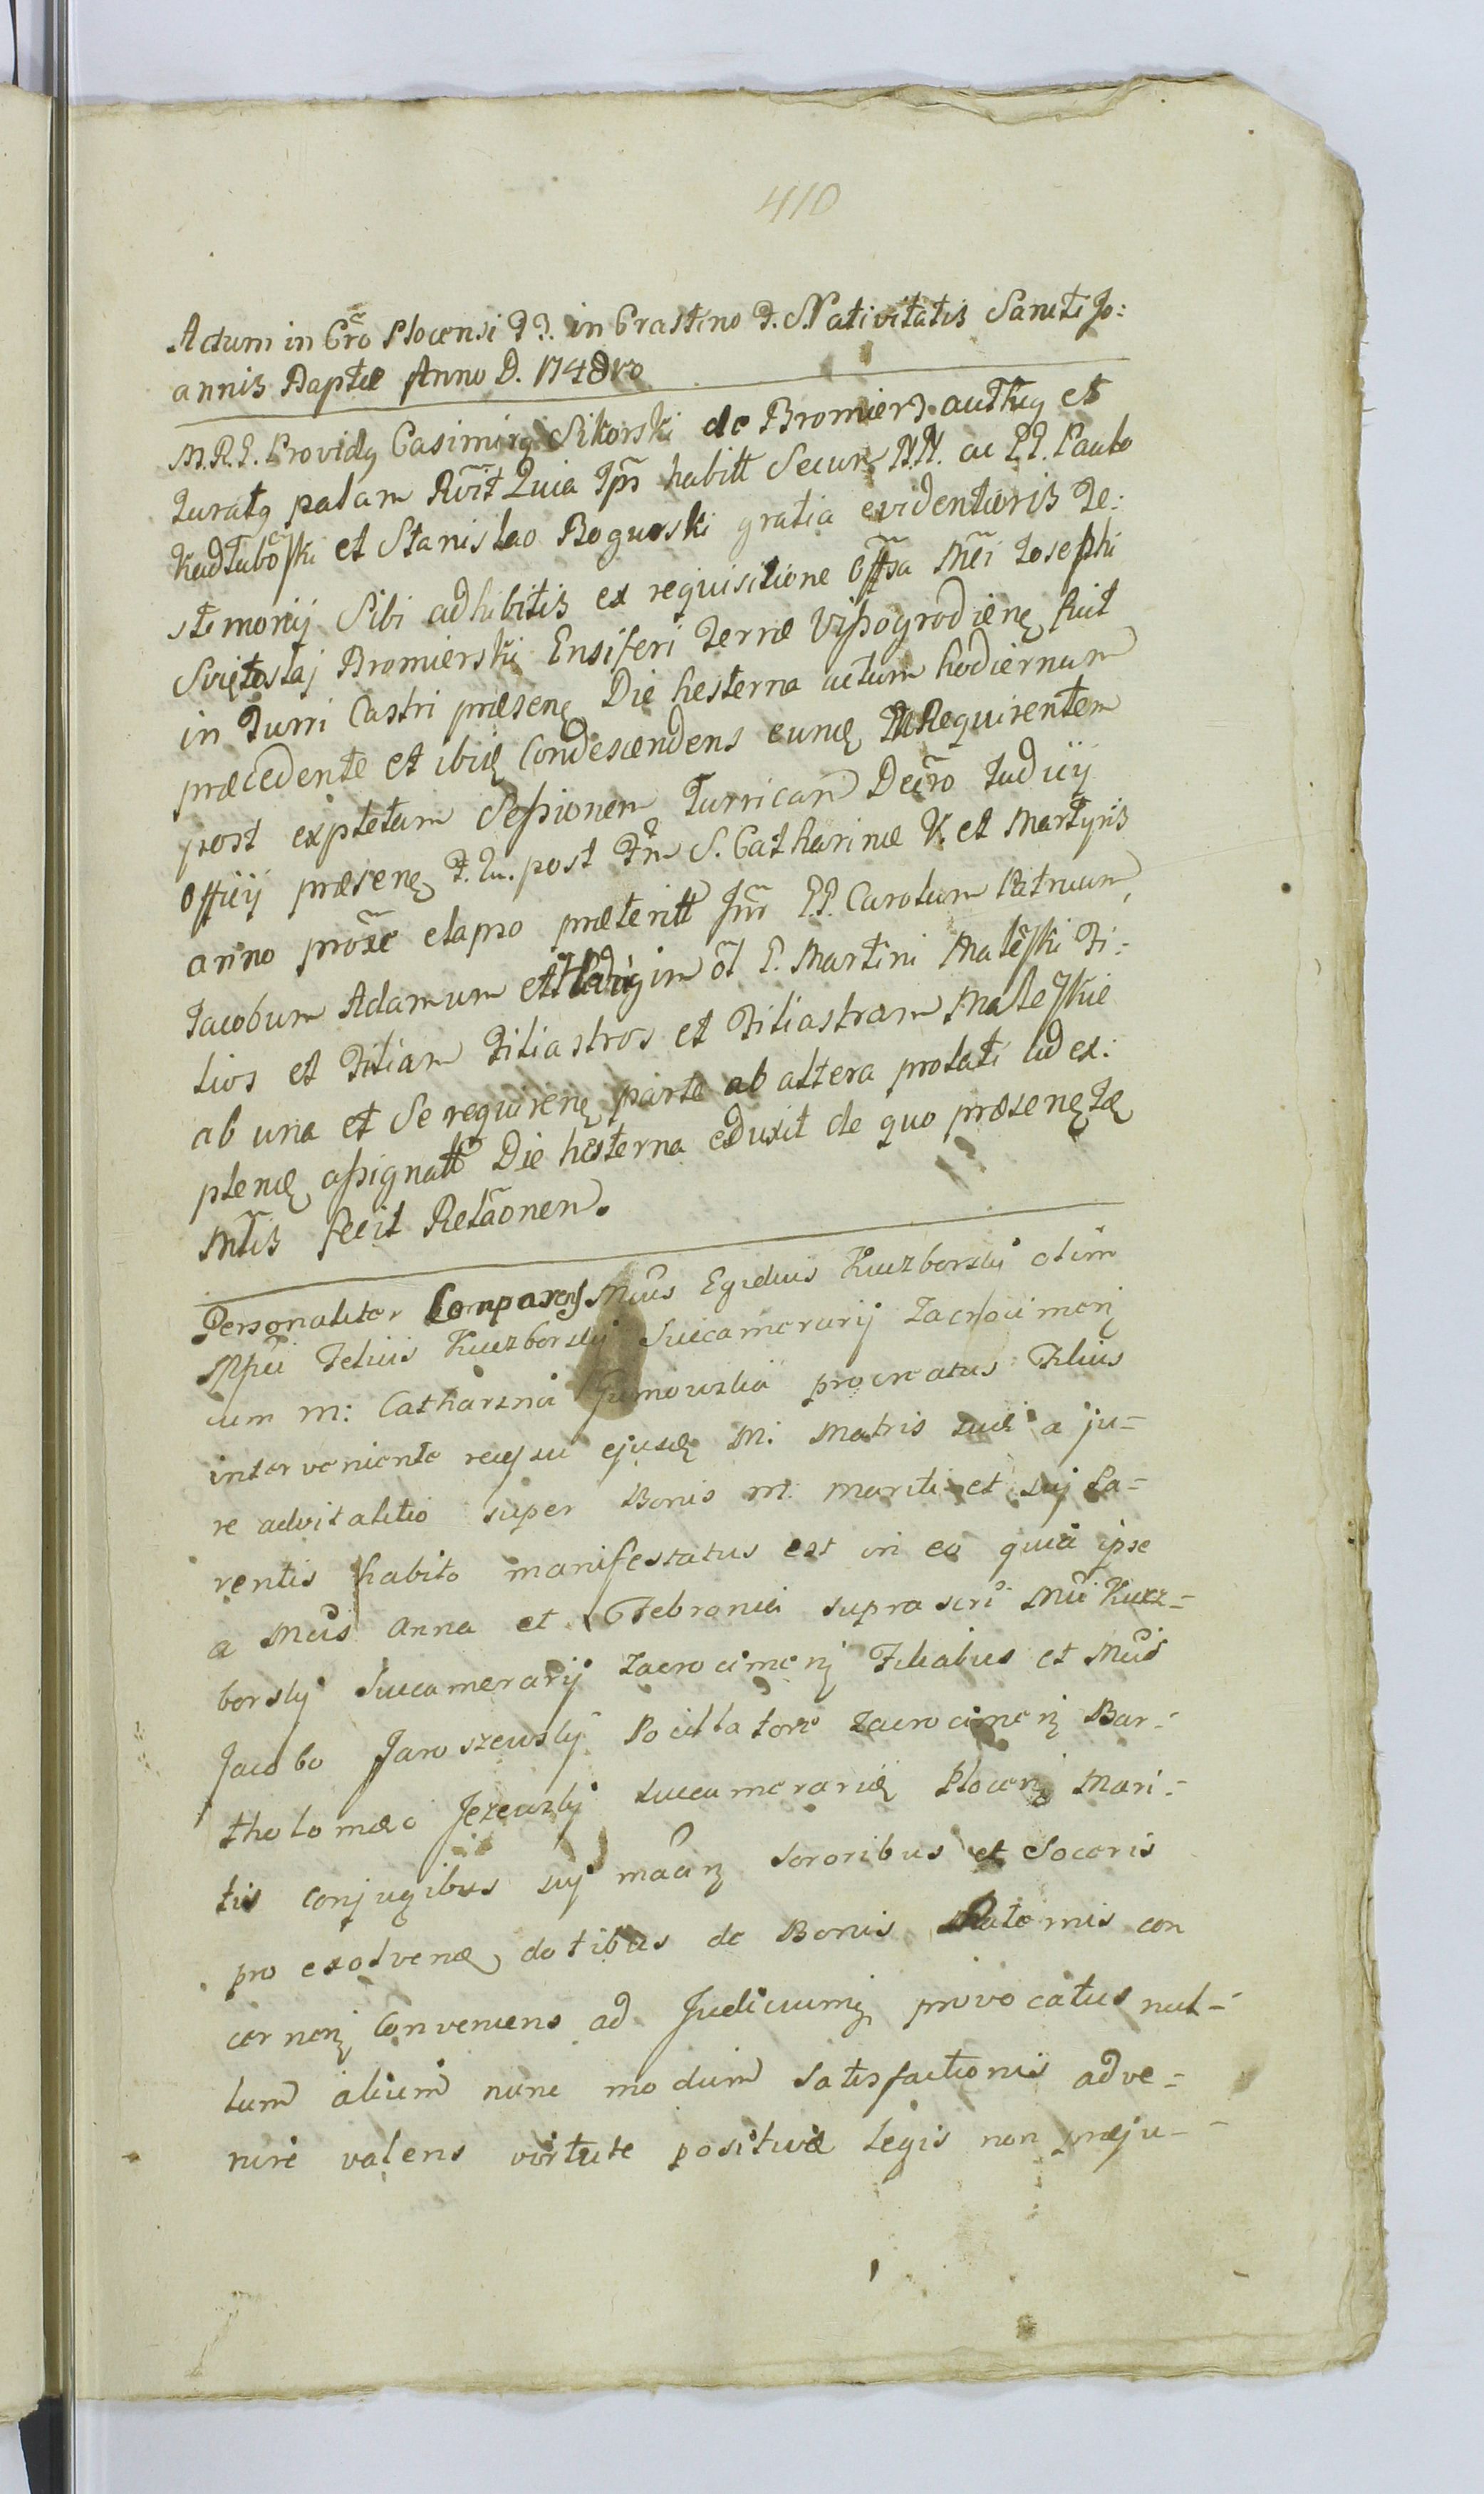 410
Actum in Cro Plocensi F 3. in Crastino F. Nativitatis Sancti Jo:
annis Baptæ Anno D. 1748vo
M.R.G. Providq Casimirq Sikorski de Bromierz authcq et
Juratq palam Rcvit Quia Ips habitt Secum N.N. ac P.P. Paulo
Kadłubőski et Stanislao Bogurski gratia evidentioris Te:
stimonij Sibi adhibitis ex requisitione Offsa Mci Josephi
Swiętosłaj Bromierski Ensiferi Terræ Vissogrodienę fuit
in Turri Castri præsenę Die hesterna actum hodiernum
præcedente et ibię Condescendens eundę Requirentem
post expletam Sessionem Turricam Decro Judicij
Officij præsenę F. Qu. post Ftm S. Catharinæ V. et Martyris
anno proxe elapso præteritt Int P.P. Carolum Patruum,
Jacobum Adamum et Hedvigim ol P. Martini Maleski Fi:
lios et Filiam Filiastros et Filiastram Maleskie
ab una et Se requirenę parte ab altera prolati ad ex:
plendę assignatt Die hesterna eduxit de quo præsenę Tę
Mtis fecit Relaonem.
Personaliter Comparens Mcus Egidius Kuczborski olim
Mfci Felicis Kuczborskij Succamerarij Zacrocimenę
cum M: Catharina Gumowska procreatus Filius
interveniente recessu ejusdę M: Matris suæ a ju-
re advitalitio super Bonis M: Mariti et suj Pa-
rentis habito manifestatus est in eo quia ipse
a Mcis Anna et Febronia suprascri Mci Kucz-
borskj Succamerarij Zacrocimenę Filiabus et Mcis
Jacobo Jaroszewskj Pocillatore Zacrocimenę Bar-
tholomæo Jezewskj Succamerarię Plocenę Mari-
tis Conjugibus suj maanę Sororibus et Soceris
pro exolvendę dotibus de Bonis Paternis con
cernenę Conveniens ad Judiciumę provocatus nul-
lum alium nunc modum Satisfactionis adve-
nire valens virtute positivæ Legis non præju-